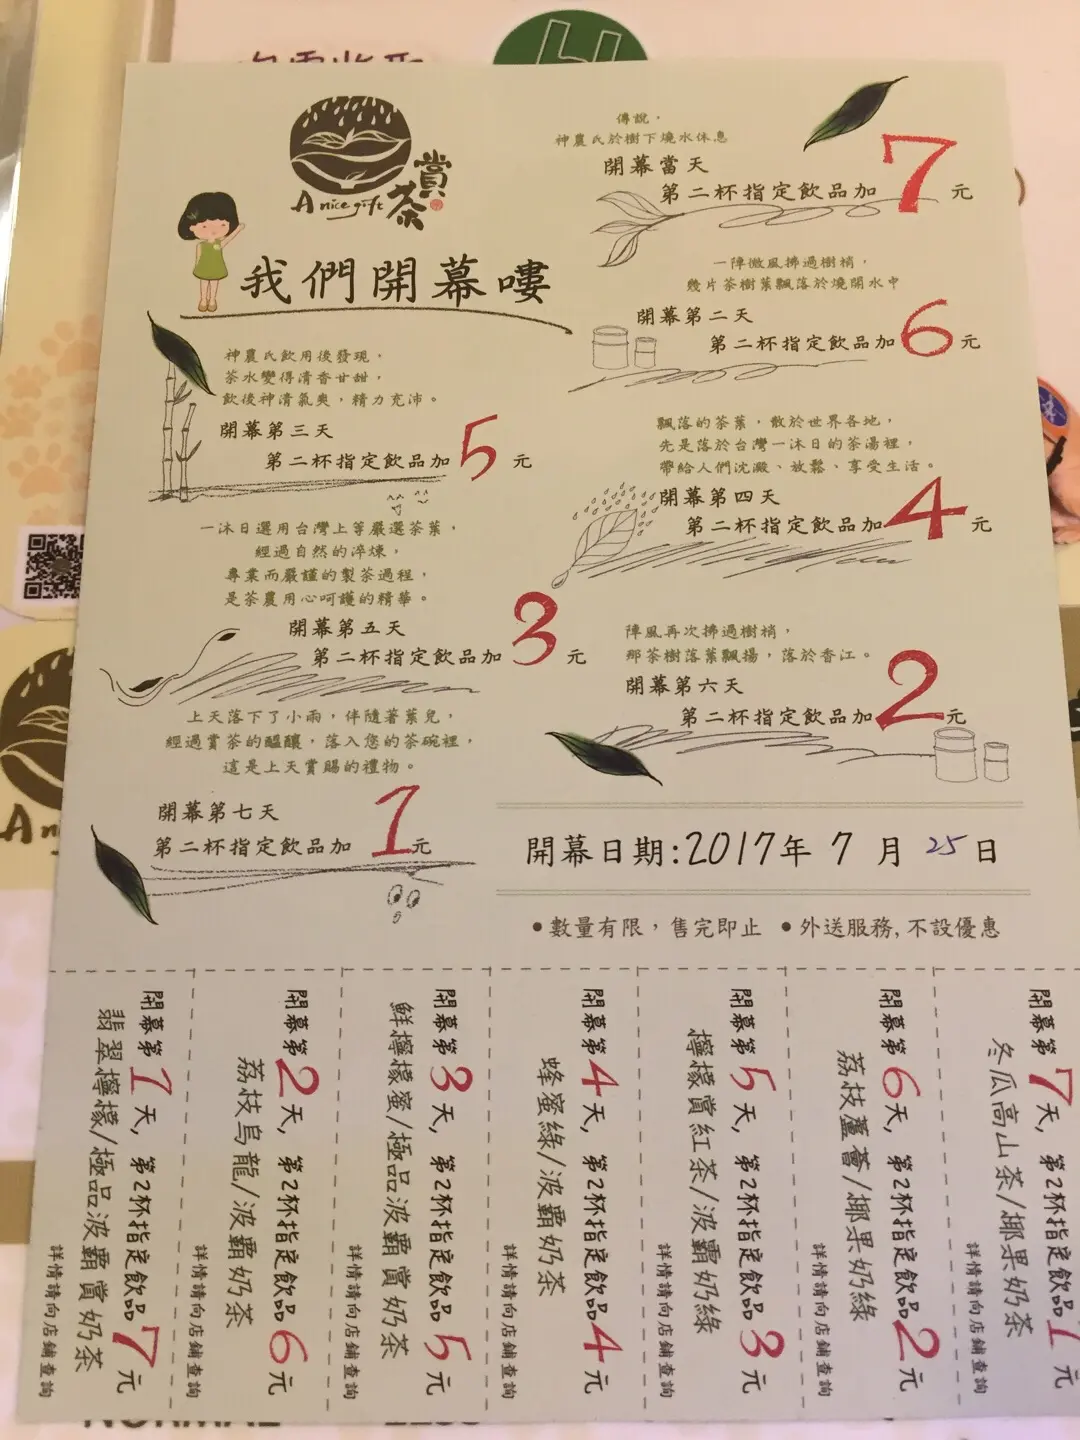 A nice gift
賞茶
我們開幕嘍
傳說，
神農氏於樹下燒水休息
開幕當天
第二杯指定飲品加7元
一陣微風拂過樹梢，
幾片茶樹葉飄落於燒開水中
開幕第二天
第二杯指定飲品加6元
神農氏飲用後發現，
茶水變得清香甘甜，
飲後神清氣爽，精力充沛。
開幕第三天
第二杯指定飲品加5元
飄落的茶葉，散於世界各地，
先是落於台灣一沐日的茶湯裡，
帶給人們沈澱、放鬆、享受生活。
開幕第四天
第二杯指定飲品加4元
一沐日選用台灣上等嚴選茶葉，
經過自然的淬煉，
專業而嚴謹的製茶過程，
是茶農用心呵護的精華。
開幕第五天
第二杯指定飲品加3元
陣風再次拂過樹梢，
那茶樹落葉飄揚，落於香江。
開幕第六天
第二杯指定飲品加2元
上天落下了小雨，伴隨著葉兒，
經過賞茶的醞釀，落入您的茶碗裡，
這是上天賞賜的禮物。
開幕第七天
第二杯指定飲品加1元
開幕日期:2017年7月25日
•數量有限，售完即止 •外送服務,不設優惠
開幕第1天，第2杯指定飲品7元
翡翠檸檬/極品波霸賞奶茶
詳情請向店鋪查詢
開幕第2天，第2杯指定飲品6元
荔枝烏龍/波霸奶茶
詳情請向店鋪查詢
開幕第3天，第2杯指定飲品5元
鮮檸檬蜜/極品波霸賞奶茶
詳情請向店鋪查詢
開幕第4天，第2杯指定飲品4元
蜂蜜綠/波霸奶茶
詳情請向店鋪查詢
開幕第5天，第2杯指定飲品3元
檸檬賞紅茶/波霸奶綠
詳情請向店鋪查詢
開幕第6天，第2杯指定飲品2元
荔枝蘆薈/椰果奶綠
詳情請向店鋪查詢
開幕第7天，第2杯指定飲品1元
冬瓜高山茶/椰果奶茶
詳情請向店鋪查詢